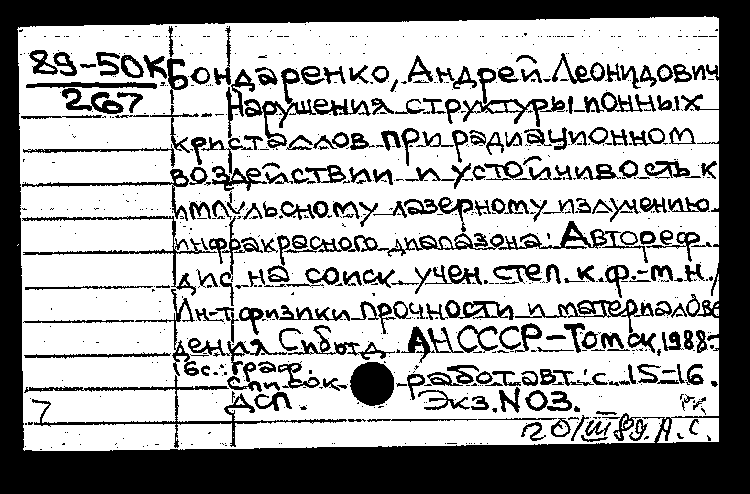 89-50К Бондаренко, Андрей Леонидович
267 Нарушения структуры ионных
кристаллов при радиационном
воздействии и устойчивость к
импульсному лазерному излучению
инфракрасного диапазона: Автореф.
дис. на соиск. учен. степ. к.ф.-м.н./
Ин-т физики прочности и материалове
дения Сиб отд АН СССР.-Томск,1988-
16с.: граф.
список работ авт: с. 15-16.
7 ДСП. Экз.N03. РК
20/III 89. А.С.